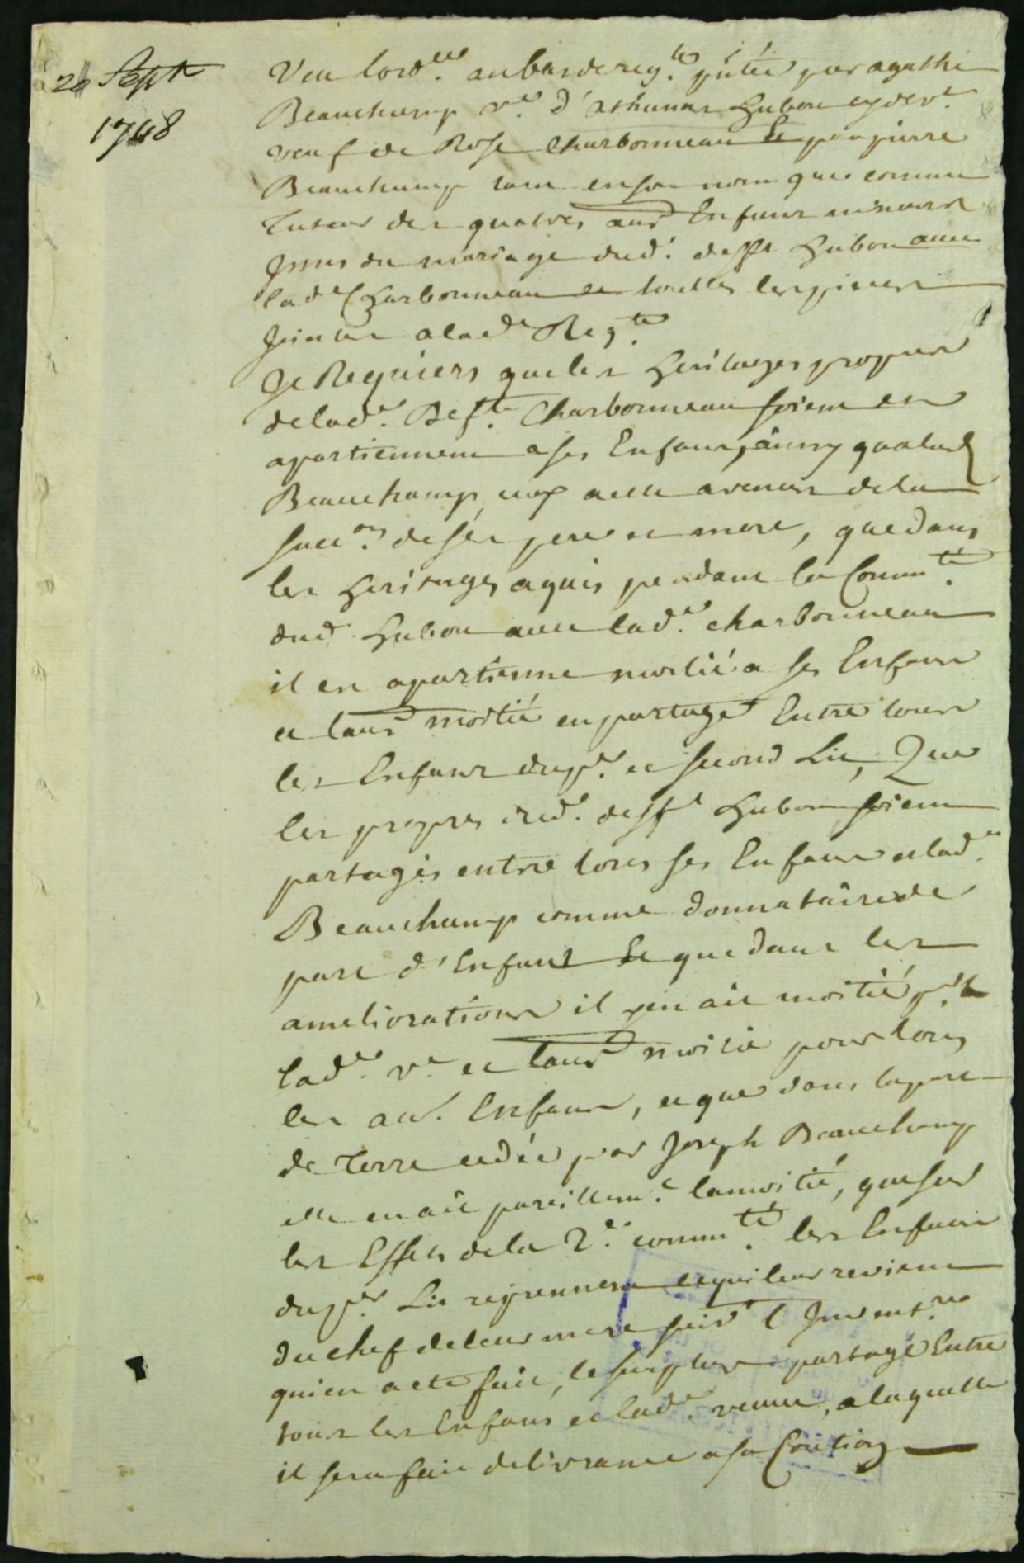 20 Sept
1748
Veu lord.ce au bas de req.te p̃ntée par agathe
Beauchamp v.e d'athanas hubou cy dev.t
veuf de Rose Charbonneau Et par pierre
Beauchamp tant en son nom que comme
Tuteur des quatres aut Enfans mineurs
Issus du mariage dud.t deff.t hubou avec
lad.e Charbonneau et touttes les pieces
Jointes a lad.e Req.te
Je Requiers que les heritages propres
de lad.e Def.te Charbonneau soient et
apartiennent a ses Enfans, ainsy quaud
Beauchamp, avenans de la
succ.on de ses pere et mere, que dans
les heritages aquis pendant la Comm.té
dud hubou avec lad.e charbonneau
il en apartienne moitié a ses Enfans
et laut moitié en partage Entre tous
les Enfans du p.r et second Lit, Que
les propres dud.t deff.t hubou soient
partagés entre tous ses Enfans et lad.e
Beauchamp comme donnataire de
part d'Enfant Et que dans les
ameliorations il y en ait moitié p.r
lad.e v.e et laut moitié pour tous
les au.t Enfans, et que dans la part
de Terre cedée par Joseph Beauchamp
elle en ait pareillem.t la moitié, que sur
les Effets de la 2.e comm.té les Enfans
du p.er Lit reprennent ce qui leur revient
du chef de leur mere suiv.t l Invent.re
qui en a ete fait, le surplus partagé Entre
tous les Enfans et lad.e veuve, a laquelle
il sera fait delivrance a sa Caution